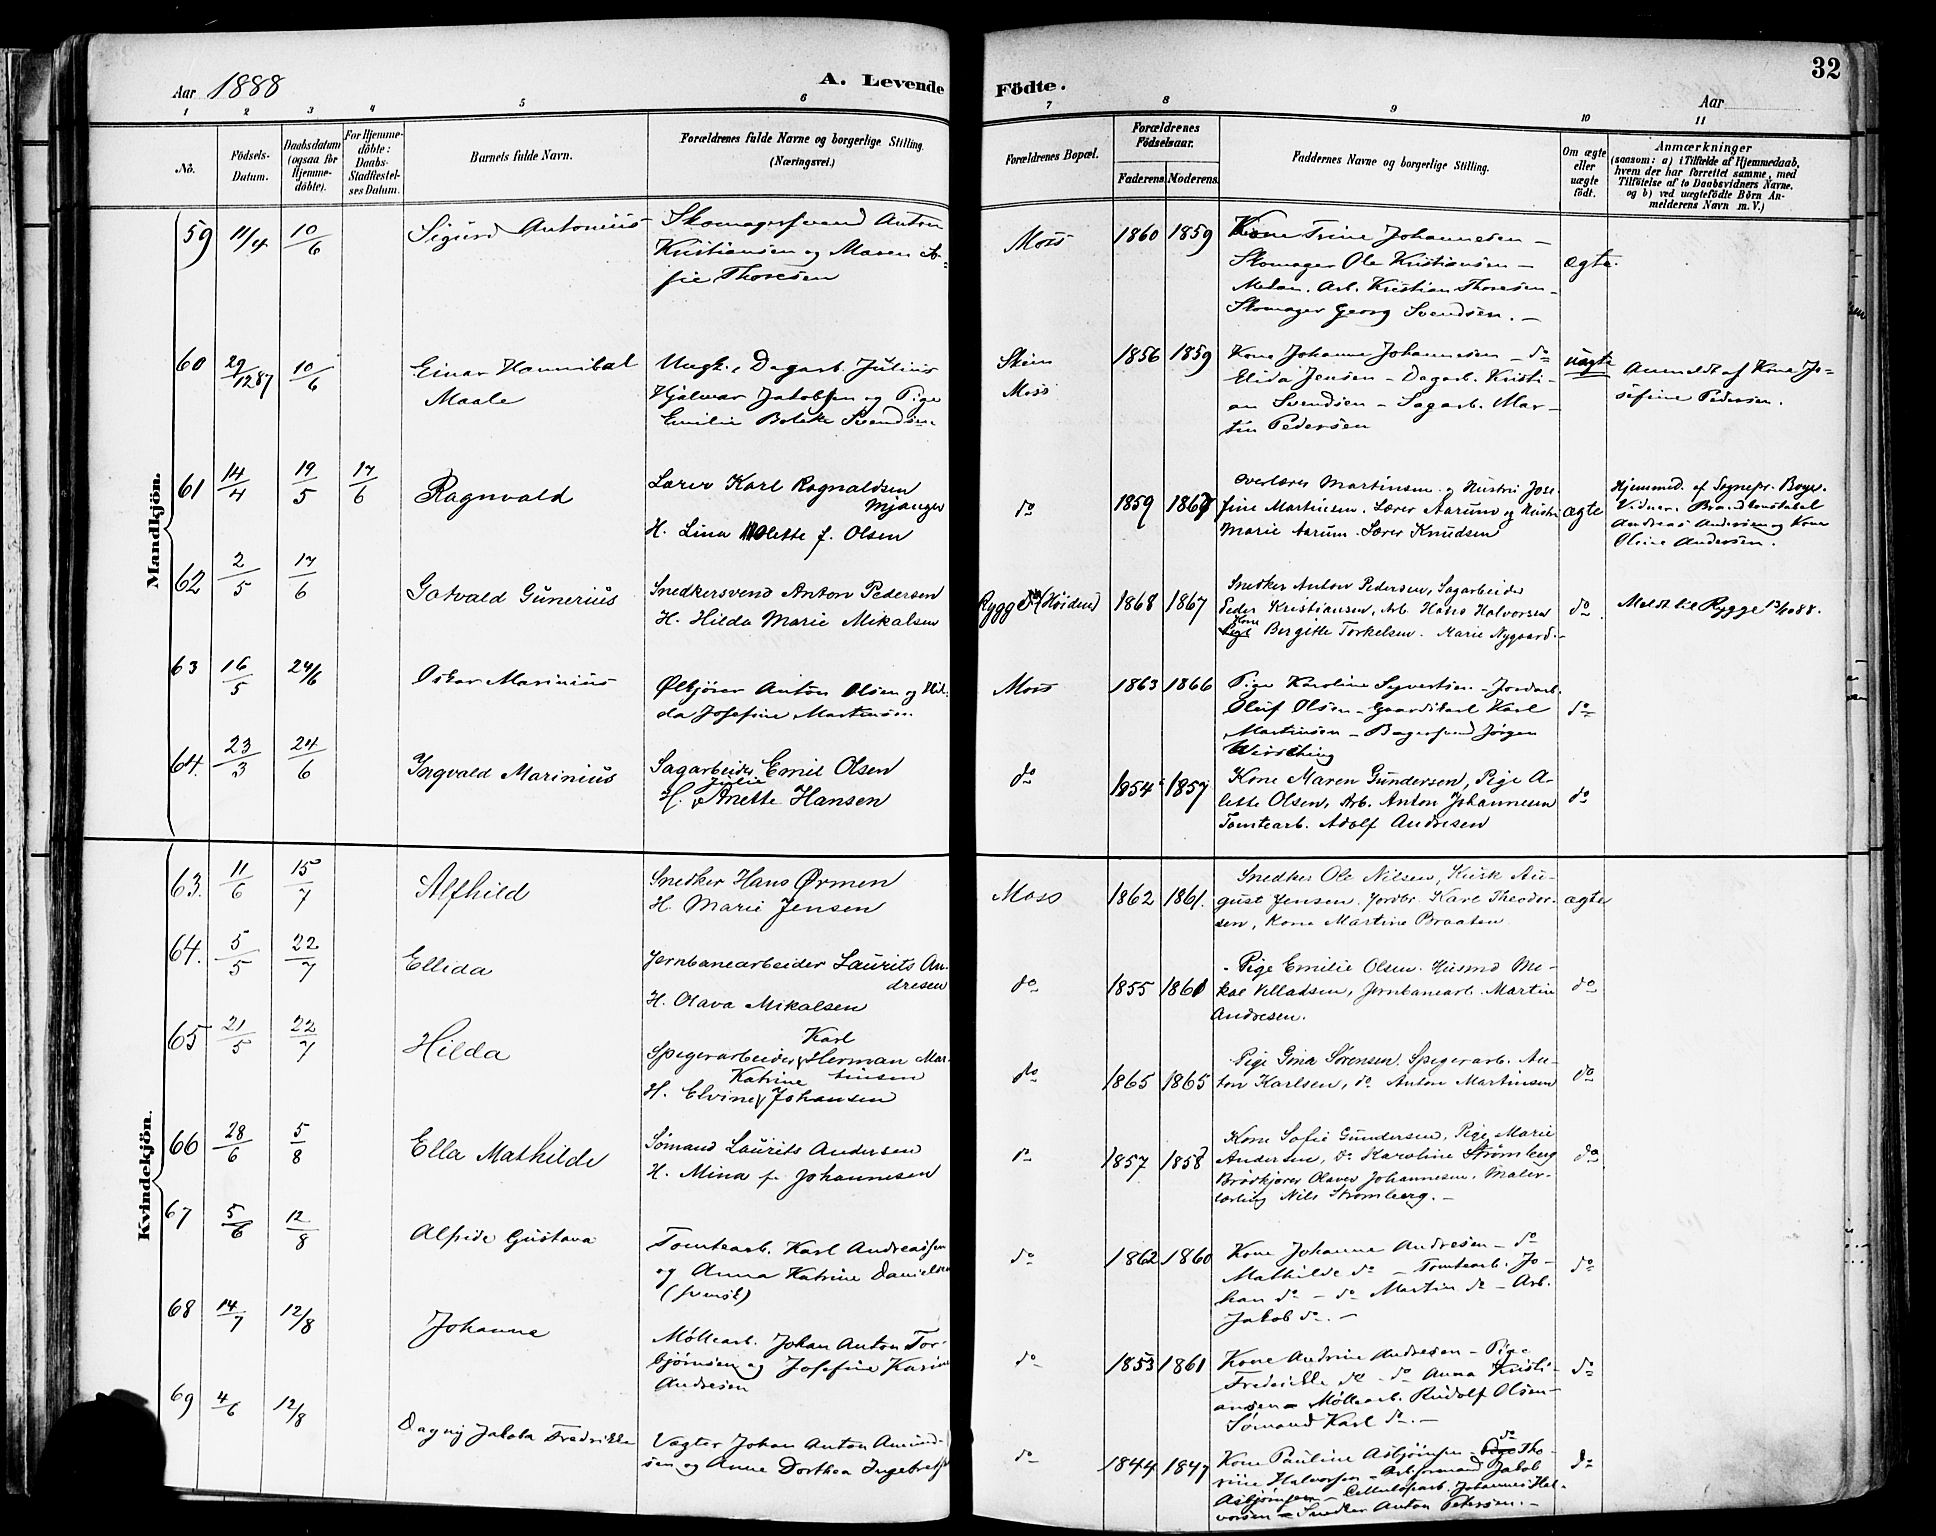 Aar 1888
A. Levende
1 2 3 4 5 6
No.
Födsels-
Datum.
Daabsdatum
(ogsaa for
Hjemme-
döbte).
For Hjemme-
döbte:
Daabs-
Stadfæstel-
ses Datum.
Barnets fulde Navn.
Forældrenes fulde Navne og borgerlige Stilling.
(Næringsvei.)
Mandkjön.
59 11/4 10/6 Sigurd Antonius Skomagersvend Anton
Kristiansen og Maren So-
fie Thoresen
60 29/12 87 10/6 Einar Hannibal Ungk., Dagarb. Julius
Maale Hjalmar Jakobsen og Pige
Emilie Bolette Svendsen.
61 14/4 19/5 17/6 Ragnvald Lærer Karl Ragnaldsen
Mjanger
H. Lina Olette f. Olsen
62 2/5 17/6 Gotvald Gunerius Snedkersvend Anton Pedersen
H. Hilda Marie Mikalsen
63 16/5 24/6 Oskar Marinius Ølkjører Anton Olsen og Hil-
da Josefine Martinsen.
64. 23/3 24/6 Ingvald Marinius Sagarbeider Emil Olsen
Julie
H. Anette Hansen
Kvindekjön.
63. 11/6 15/7 Alfhild Snedker Hans Ørmen
H. Marie Jensen
64. 5/5 22/7 Ellida Jernbanearbeider Laurits An-
dresen
H. Olava Mikalsen
65 21/5 22/7 Hilda Karl
Spigerarbeider Herman Mar-
Katrine tinsen
H. Elvine Johansen
66 28/6 5/8 Ella Mathilde Sømand Laurits Andersen
H. Mina f. Johannesen
67 5/6 12/8 Alfide Gustava Tomtearb. Karl Andreassen
og Anna Katrine Danielsen
(svensk)
68 14/7 12/8 Johanne Møllearb. Johan Anton Tor-
bjørnsen og Josefine Karine
Andresen
69 4/6 12/8 Dagny Jakoba Fredrikke Vægter Johan Anton Amund-
sen og Anne Dorthea Ingebretsen
Födte.
32
Aar
7 8 9 10 11
Forældrenes Bopæl.
Forældrenes
Födselsaar.
Faderens Moderens
Faddernes Navne og borgerlige Stilling.
Om ægte
eller
uægte
födt.
Anmærkninger
(saasom: a) i Tilfælde af Hjemmedaab,
hvem der har forrettet samme, med
Tilföielse af to Daabsvidners Navne,
og b) ved uægtefödte Börn An-
melderens Navn m. V.)
Moss 1860 1859 Kone Trine Johannesen –
Skomager Ole Kristiansen –
Arb. Kristian Thoresen – ægte.
Skomager Georg Svendsen. –
Skien 1856 1859 Kone Johanne Johannesen – do
Moss Elida Jensen – Dagarb. Kristi- uægte Anmeldt af Kone Jo-
an Svendsen – Sagarb. Mar- sefine Pedersen.
tin Pedersen
do 1859 1867 Overlærer Martinsen og Hustru Jose-
fine Martinsen. Lærer Aarum og Hustru ægte
Marie Aarum. Lærer Knudsen
Hjemmed. af Sognepr. Boye.
Vidner. Brandkonstabel
Andreas Andersen og Kone
Oline Andersen.
Rygge (Høiden) 1868 1867 Snedker Anton Pedersen, Sagarbeider
Peder Kristiansen, Arb. Hans Halvorsen do Meldt til Rygge 13/10 88.
Kone Birgitte Torkelsen. Marie Nygaard. –
Moss 1863 1866 Pige Karoline Syvertsen. – Jordarb.
Oluf Olsen – Gaardskarl Karl do
Martinsen – Bagersvend Jørgen
do 1854 1857 Kone Maren Gundersen, Pige A-
lette Olsen, Arb. Anton Johannesen do
Tomtearb. Adolf Andresen
Moss 1862 1861. Snedker Ole Nilsen, Kusk Au-
gust Jensen. Jordbr. Karl Theodor- ægte
sen, Kone Martine Braaten
do 1855 1861 Pige Emilie Olsen. Husmd Mi-
kal Villadsen, Jernbanearb. Martin do
Andresen.
do 1865 1865 Pige Gina Sørensen. Spigerarb. An-
ton Karlsen, do Anton Martinsen do
do 1857 1858 Kone Sofie Gundersen, Pige Marie
Andersen, do Karoline Strømberg do
Brødkjører Olaves Johannesen, Maler-
lærling Nils Strømberg. –
do 1862 1860 Kone Johanne Andresen – do
Mathilde do – Tomtearb. Jo- do
han do – do Martin do – Arb.
Jakob do. –
do 1853 1861 Kone Andrine Andresen – Pige
Fredrikke do – do Anna Kristi- do
ansen – Møllearb. Rudolf Olsen –
Sømand Karl do. –
do 1844 1847 Kone Pauline Asbjørnsen – do Tho-
rine Halvorsen – Arbformand Jakob do
Asbjørnsen – Cellulosearb. Johannes Hal-
vorsen – Snedker Anton Petersen. –